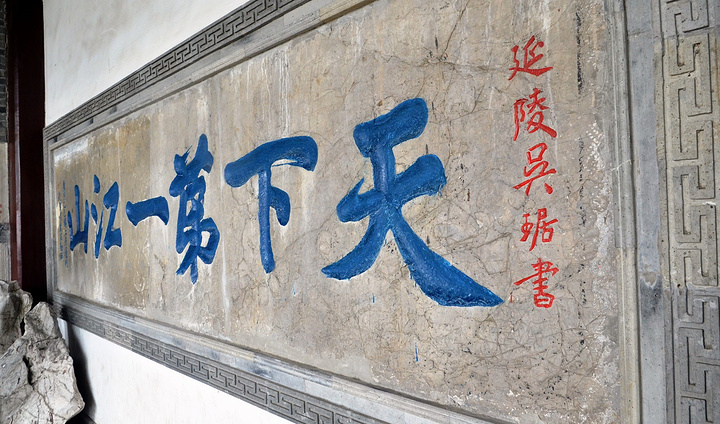 延陵吴琚書
天下第一江山